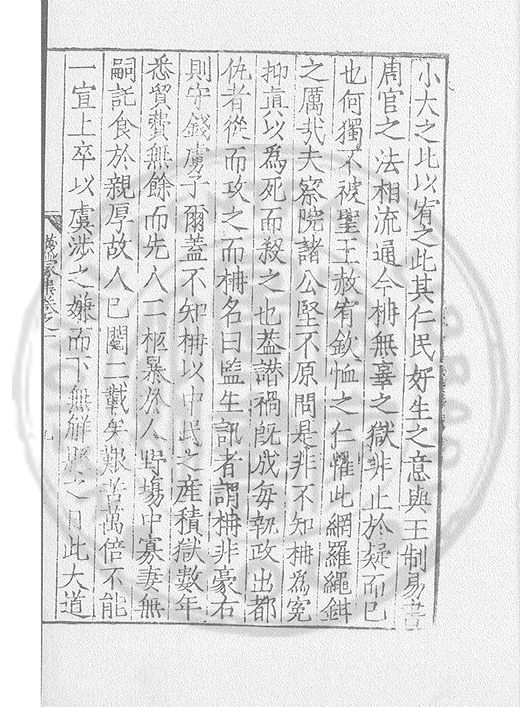 小大之比以宥之此其仁民好生之意與王制易書
周官之法相流通今柟無辜之獄非止於疑而巳
也何獨不被聖王赦宥欽恤之仁懼此網羅繩鉗
之厲哉夫察院諸公堅不原問是非不知柟爲冤
抑直以爲死而殺之也葢譖禍旣成每執政出都
仇者從而攻之而柟名曰監生訊者謂柟非豪右
則守錢虜子爾蓋不知柟以中民之產積獄數年
悉貿費無餘而先人二柩暴於人野塲中寡妻無
嗣託食於親厚故人巳閱二載矣艱苦萬倍不能
一宣上卒以虞涉之嫌而下無解懸之日此大道
蠓集卷之一
九